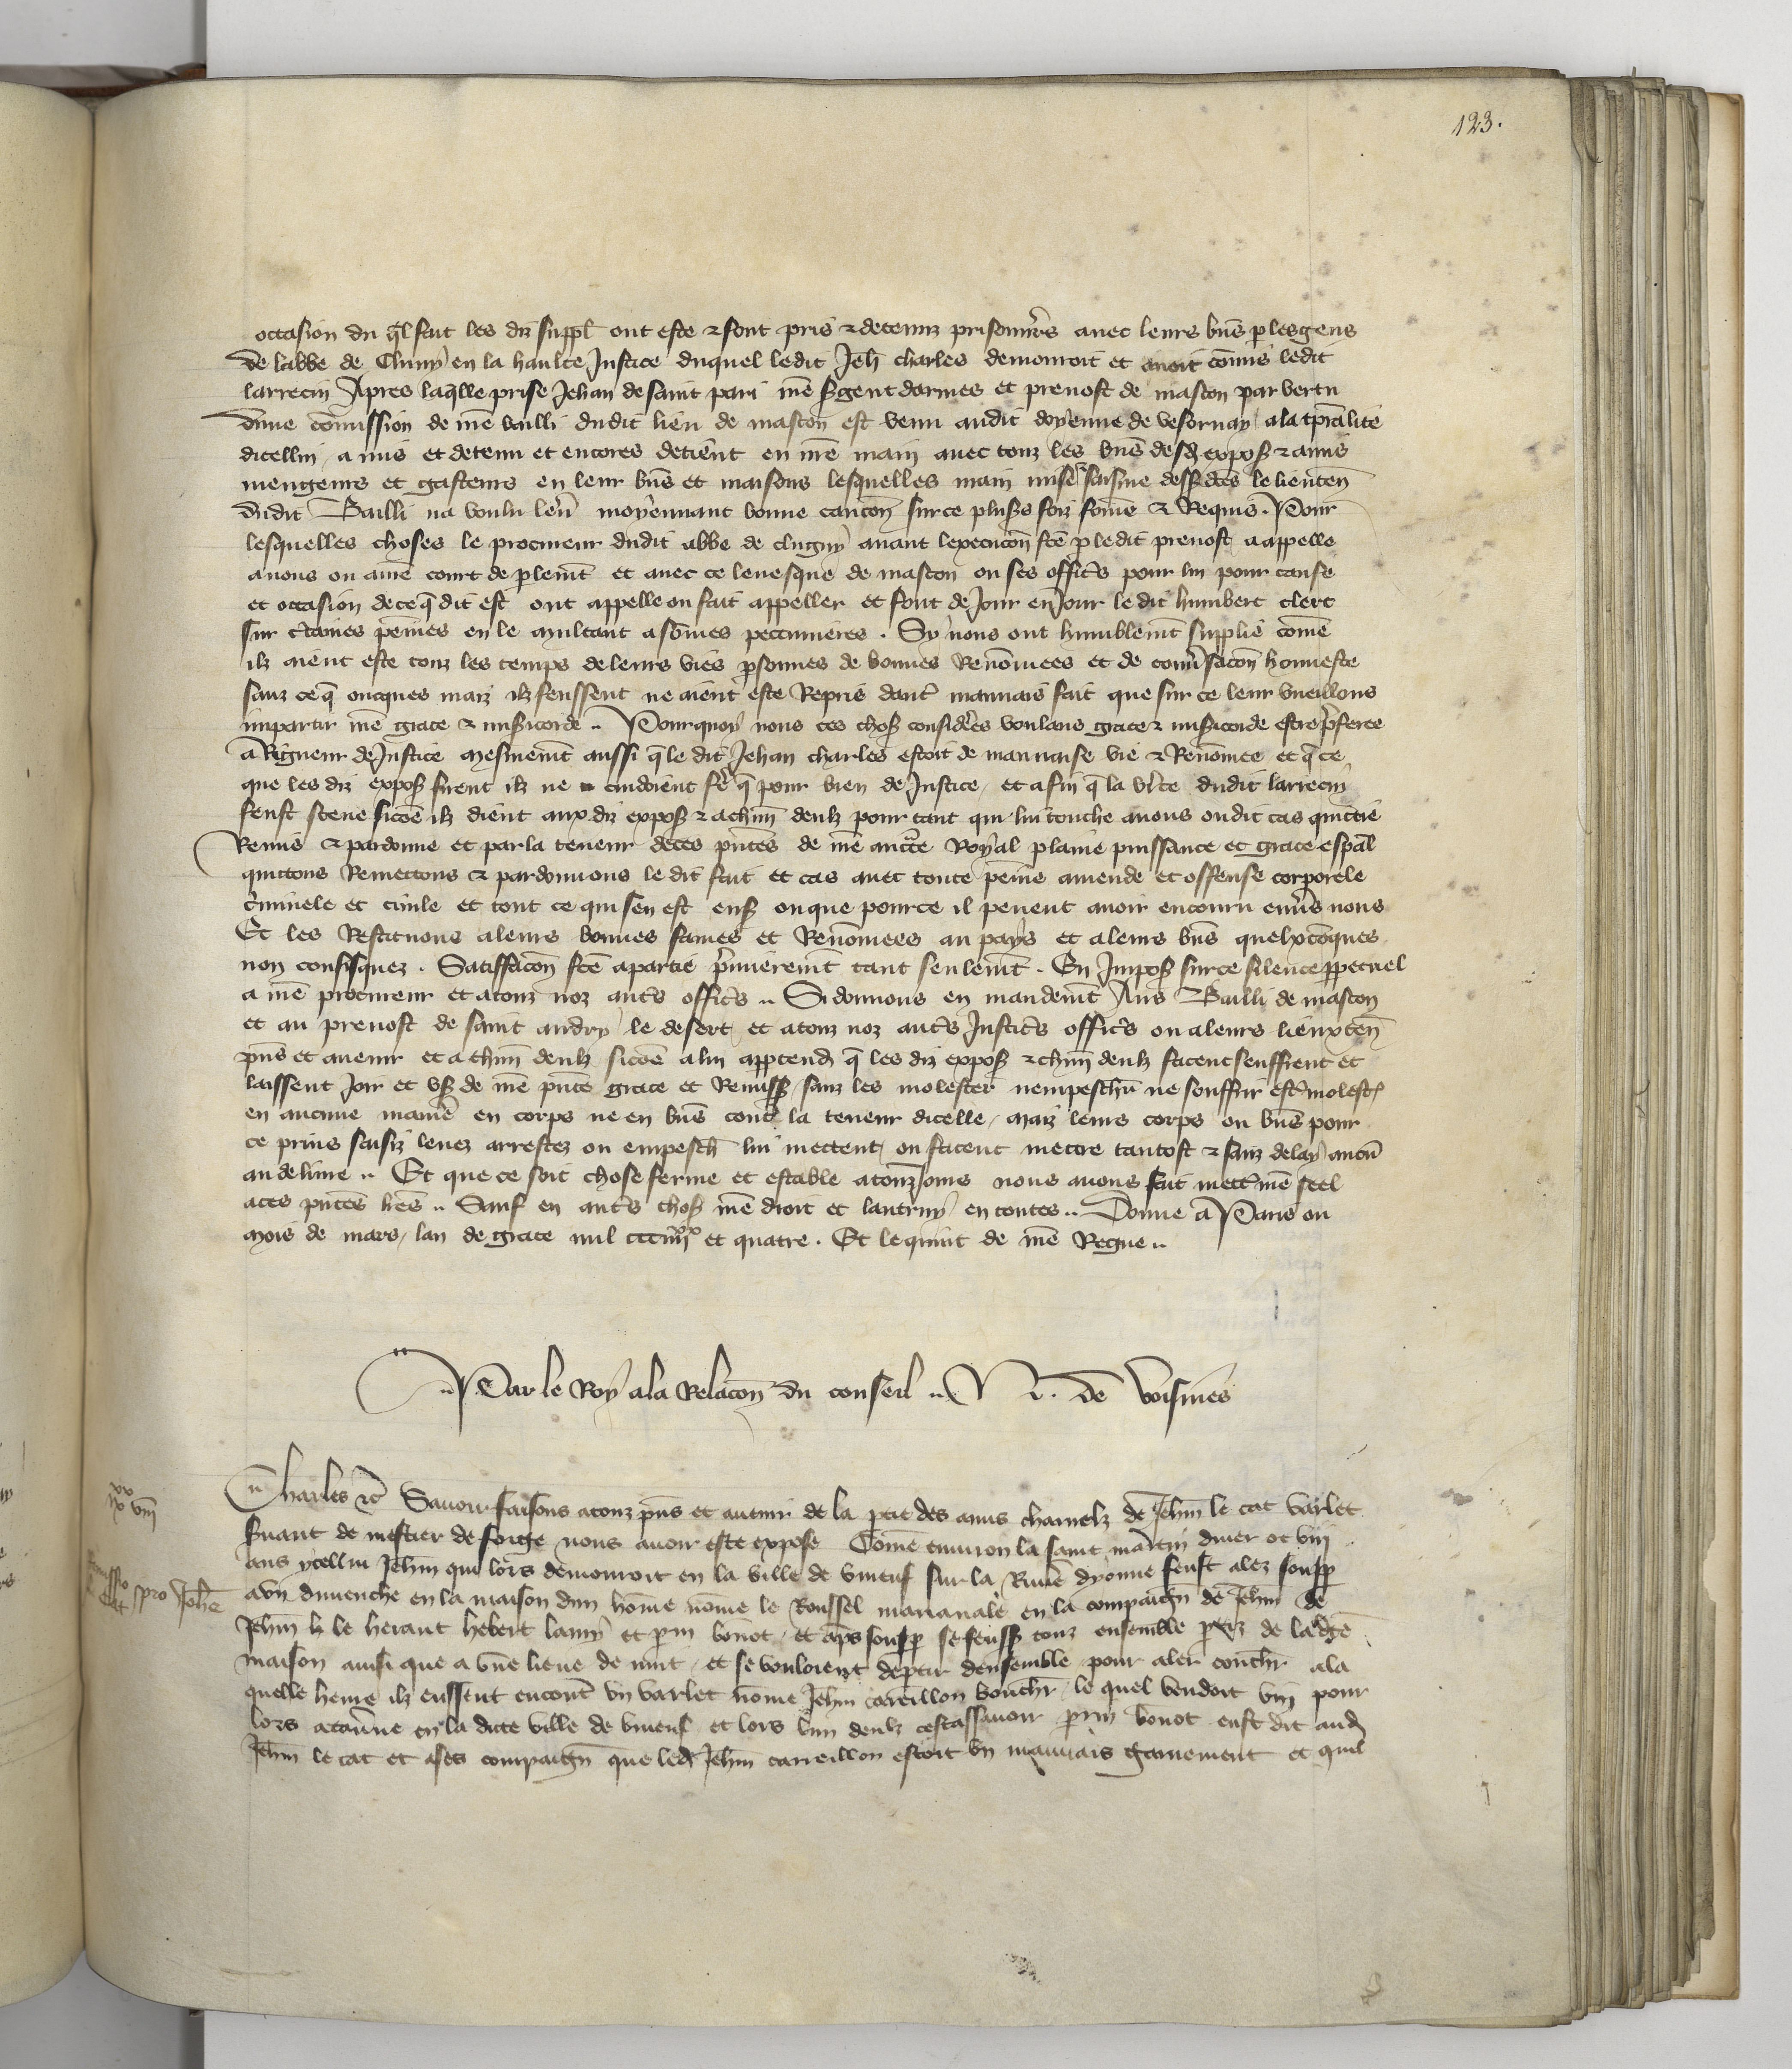 123.
occasion du q̄l fait les diz suppl̄ ont este & sont pris & detenuz prisonn̄rs avec leurs bn̄s p les gens
de labbe de Cluny en la haulte Justice duquel ledit Jeh̄ charles demouroit et avoit cōmis ledit
larrecin Apres laq̄lle prise Jehan de saint pari nr̄e sergent darmes et prevost de mascon par vertu
dune cōmission de nr̄e bailli dudit lieu de mascon est venu audit doyenne de vesornay a la tp̄ralite
dicellui a mis et detenu et encores detient en nr̄e main avec touz les bn̄s desd expos & a mis
mengeurs et gasteurs en leur bn̄s et maisons lesquelles main mise & saisine dess dc̄es le lieuten̄
dudit Bailli na voulu lever moyennant bonne caucōn sur ce pluss foiz sōme & Requis . Pour
lesquelles choses le procureur dudit abbe de clugny avant lexecucōn fc̄e p ledit prevost a appelle
a nous ou a nr̄e court de plem̄t et avec ce levesque de mascon ou ses offic̄rs pour lui pour cause
et occasion de ce q̄ dit est ont appelle ou fait appeller et font de Jour en Jour le dit humbert clerc
sur c̄taines peines en le multant a sōmes peccunieres . Sy nous ont humblem̄t supplie cōme
ilz aient este touz les temps de leurs vies p̄sonnes de bonnes Renōmees et de conv̄sacōn honneste
sanz ce q̄ oncques maiz ilz feussent ne aient este Repris daut̄ mauvais fait que sur ce leur vueillons
impartir nr̄e grace & mis̄icorde .. Pourquoy nous ces chos considerees voulans grace & mis̄icorde estre p̄feree
a Rigueur de Justice mesmem̄t aussi q̄ le dit Jehan charles estoit de mauvaise vie & Renōmee et q̄ ce
que les diz expos firent ilz ne cuidoient fe q̄ pour bien de Justice et afin q̄ la v̄ite dudit larrecin
feust sceue sicōe ilz dient aux diz expos & a chūn deulz pour tant qui lui touche avons oudit cas quictie
Remis & pardonne et par la teneur de ces pn̄tes de nr̄e auct̄e Royal plaine puissance et grace esp̄al
quictons Remectons & pardonnons le dit fait et cas avec toute peine amende et offense corporele
c̄iminele et civile et tout ce qui sen est ens ou que pour ce il pevent avoir encouru env̄s nous
Et les Restituons a leurs bonnes fames et Renōmees au pays et a leurs bn̄s quelxcōques
non confisquez . Satisfacōn fc̄e a partie p̄mierem̄t tant seulem̄t . En Impos sur ce silence ppetuel
a nr̄e procureur et a touz noz aut̄s offic̄rs .. Si donnons en mandem̄t Aus Bailli de mascon
et au prevost de saint andry le desert et a touz noz aut̄s Justic̄s offic̄rs ou a leurs lieuxten̄
pn̄s et avenir et a chūn deulz sicōe a lui appartend q̄ les diz expos & chūn deulz facent seuffrent et
laissent joir et us de nr̄e pn̄te grace et Remiss sanz les molester nempesch̄ ne souffrir est̄ molest
en aucune manie en corps ne en bn̄s cont̄ la teneur dicelle / maiz leurs corps ou bn̄s pour
ce prins saisiz levez arrestez ou empesch̄ lui mectent ou facent mectre tantost & sanz delay aucū
au delivre .. Et que ce soit chose ferme et estable a touz jours nous avons fait mect̄ nr̄e seel
a ces pn̄tes lr̄es .. Sauf en aut̄s chos nr̄e droit et lautruy en toutes .. Donne a Paris ou
mois de mars / lan de grace mil ccc iiii xx et quatre . Et le quint de nr̄e Regne ..
.. Par le Roy a la Relacōn du conseil .. N . de voisines
xx
ix viii
Remissio pro Johē
Charles &c Savoir faisons a touz pn̄s et avenir de la ptie des amis charnelz de Jehan le cat varlet
s̄vant de mestier de forge nous avoir este expose Cōme environ la saint martin diver ot viii
ans ycellui Jehan qui lors demouroit en la ville de vineuf sur la Rivie dyonne feust alez soupp
a un dimenche en la maison dun hōme nōme le Roussel en la compaign̄ de Jehan de
Jehan le heraut hebert lamy et prin bonot et ap̄s soupp se feuss touz ensemble ptiz de lad̄e
maison ainsi que a une lieue de nuit et se vouloient deptir densemble pour aler couch̄ a la
quelle heure ilz eussent encont̄ un varlet nōme Jehan careillon bouch̄ le quel vendoit vin pour
lors a taverne en la dicte ville de vineuf et lors lun deulz cestassavoir prin bonot eust dit aud
Jehan le cat et a ses compaign̄ que led Jehan carreillon estoit un mauvais garnement et quil